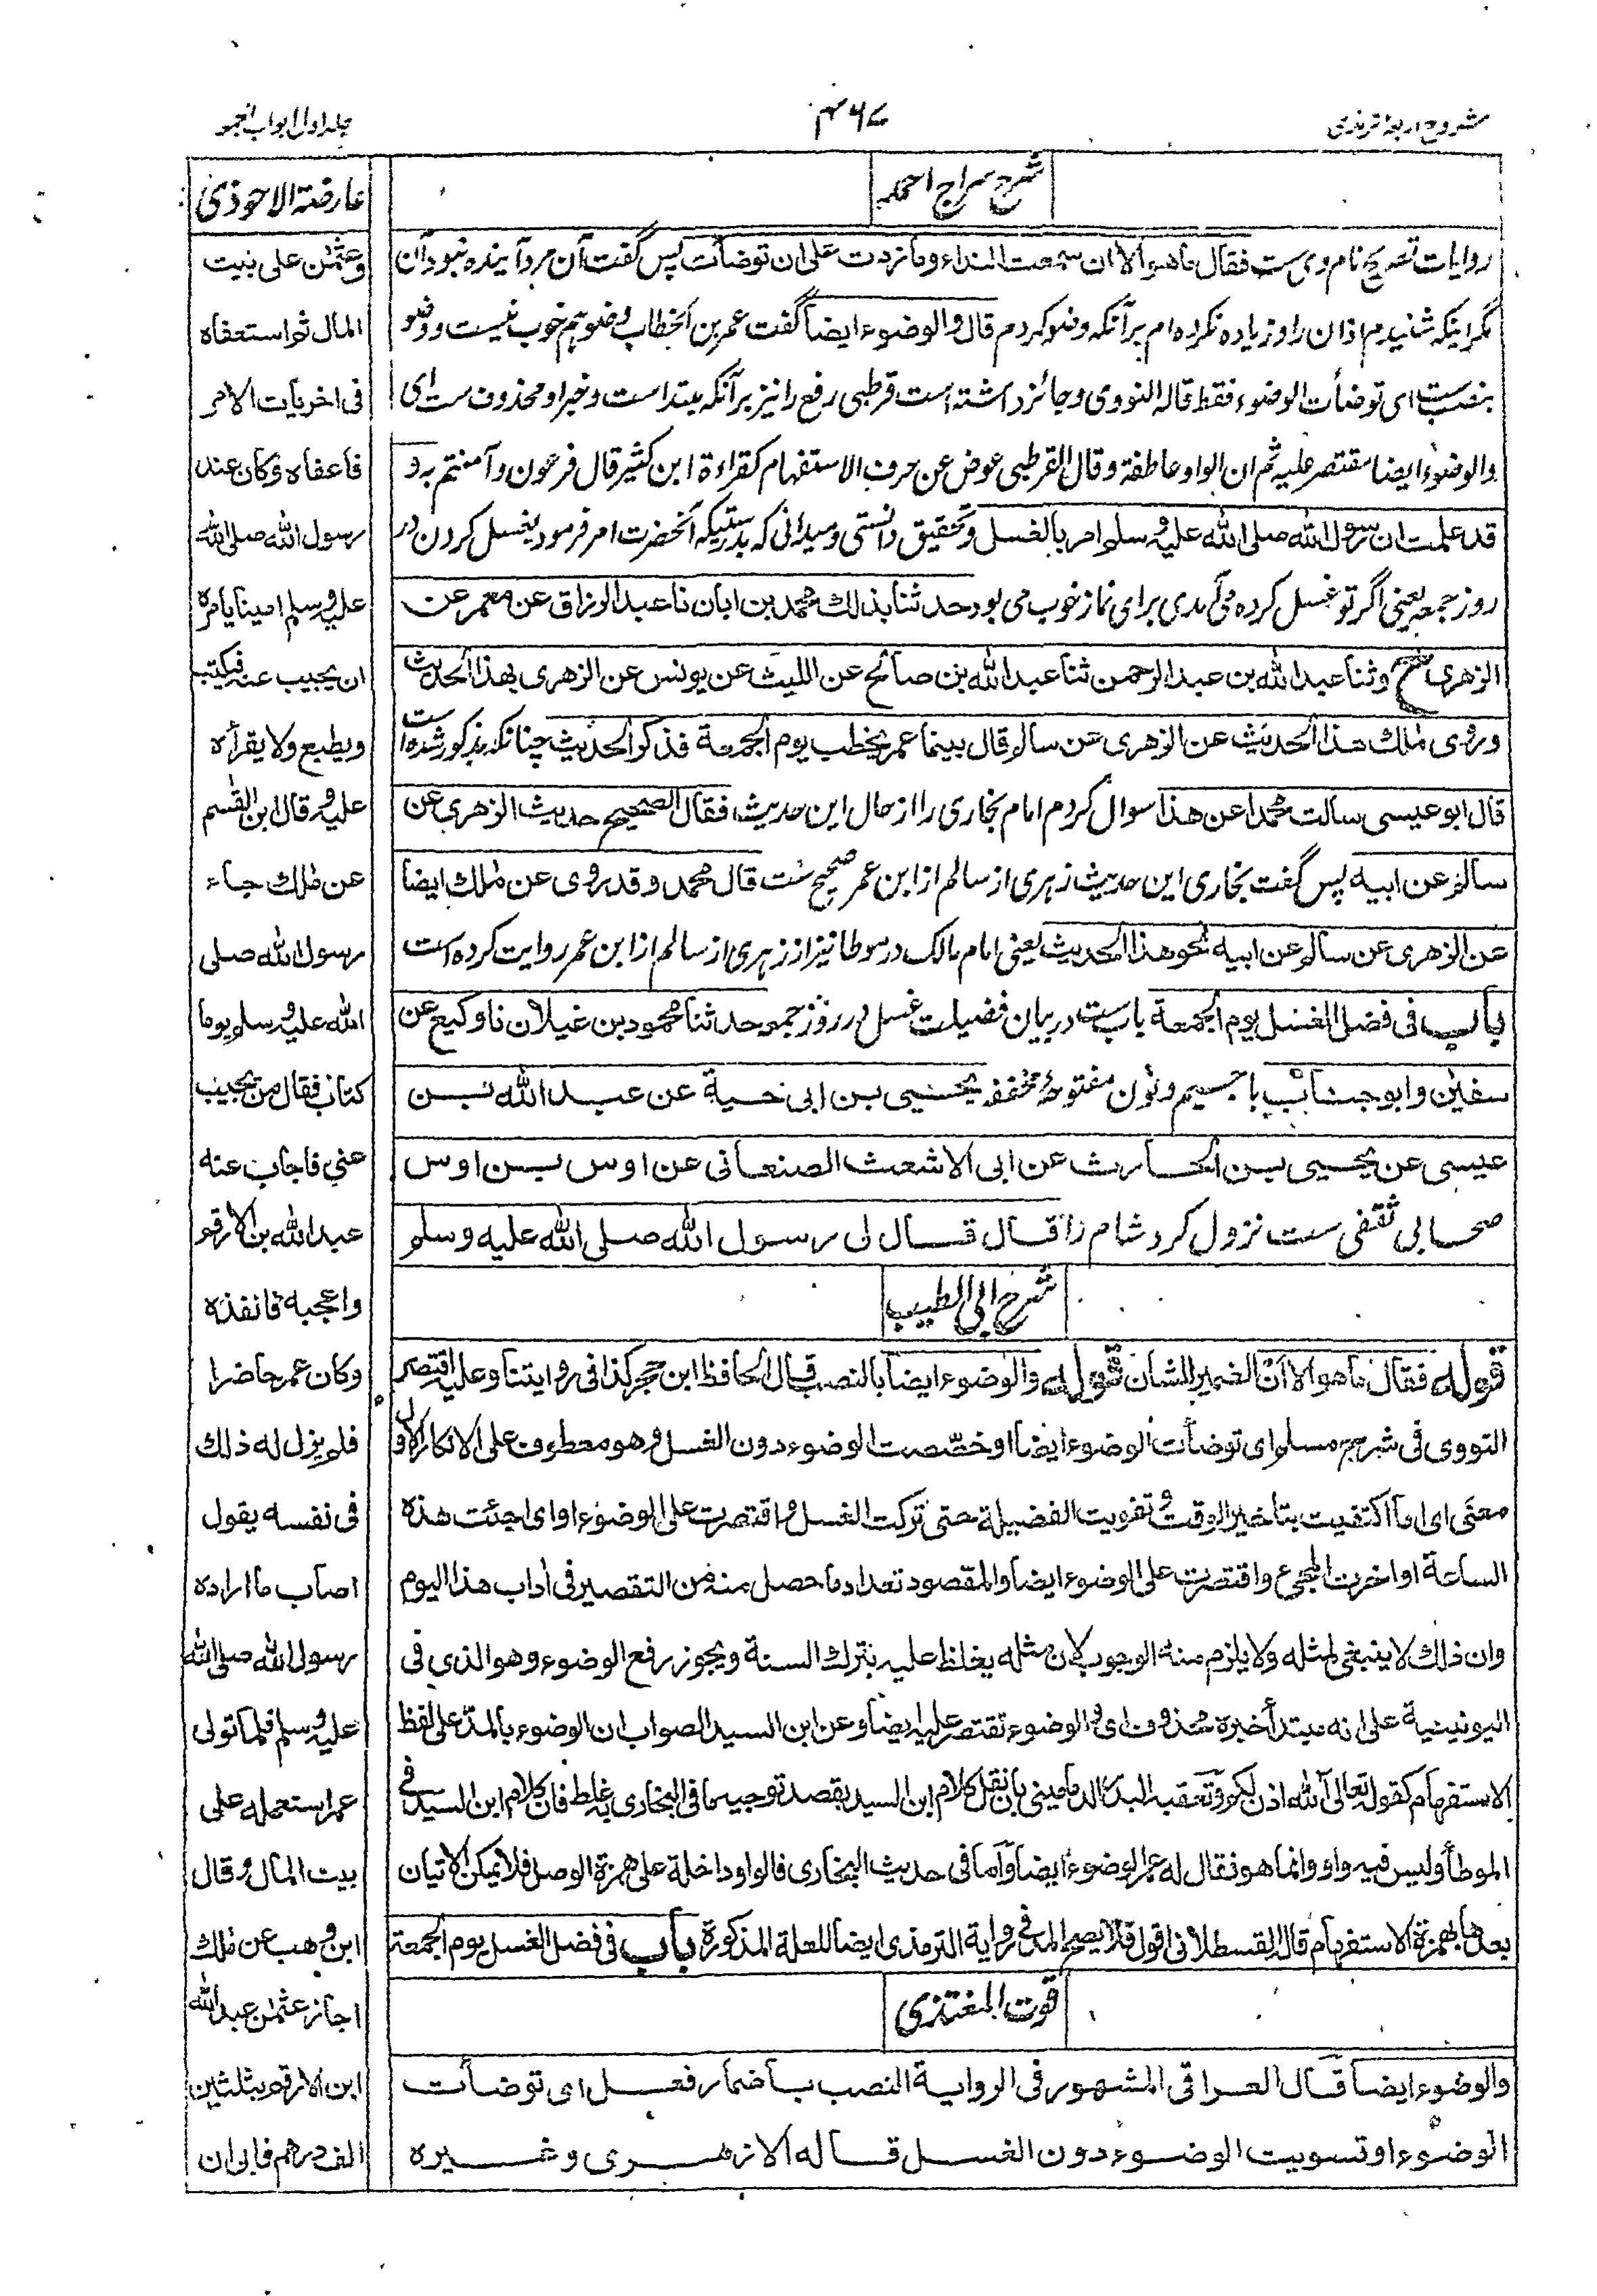 مشروح اربعۂ ترمذی
۴۶۷
جلد اول ابواب الجمعہ
شرح سراج احمد
روایات تصریح نام وی ست فقال ما هو الا ان سمعت النداء وما زدت علی ان توضأت پس گفت آن مرد آینده نبود آن
مگر اینکه شنیدم اذان را و زیاده نکرده ام برآنکه وضو کردم قال والوضوء ایضا گفت عمر بن الخطاب وضو هم خوب نیست ووضو
بنصب ست ای توضأت الوضوء فقط قاله النووی وجائز داشته است قرطبی رفع را نیز برآنکه مبتدا ست وخبر او محذوف ست ای
والوضوء ایضا مقتصر علیه ثم ان الواو عاطفة وقال القرطبی عوض عن حرف الاستفهام کقراءة ابن کثیر قال فرعون وآمنتم به و
قد علمت ان رسول الله صلی الله علیه وسلم امر بالغسل وتحقیق دانستی ومیدانی که بدرستیکه آنحضرت امر فرمود بغسل کردن در
روز جمعه یعنی اگر تو غسل کرده می آمدی برای نماز خوب می بود حدثنا بذلك محمد بن ابان نا عبد الرزاق عن معمر عن
الزهری ح وثنا عبد الله بن عبد الرحمن ثنا عبد الله بن صالح عن اللیث عن یونس عن الزهری بهذا الحدیث
وروی ملك هذا الحدیث عن الزهری عن سالم قال بینما عمر یخطب یوم الجمعة فذکر الحدیث چنانکه مذکور شده است
قال ابو عیسی سالت محمدا عن هذا سوال کردم امام بخاری را از حال این حدیث فقال الصحیح حدیث الزهری عن
سالم عن ابیه پس گفت بخاری این حدیث زهری از سالم از ابن عمر صحیح ست قال محمد وقد روی عن ملك ایضا
عن الزهری عن سالم عن ابیه نحو هذا الحدیث یعنی امام مالک در موطا نیز از زهری از سالم از ابن عمر روایت کرده است
باب فی فضل الغسل یوم الجمعة باب ست در بیان فضیلت غسل در روز جمعه حدثنا محمود بن غیلان نا وکیع عن
سفین وابو جناب با جیم ونون مفتوحه مخففه یحیی بن ابی حیة عن عبد الله بن
عیسی عن یحیی بن الحارث عن ابی الاشعث الصنعانی عن اوس بن اوس
صحابی ثقفی ست نزول کرد شام را قال قال لی رسول الله صلی الله علیه وسلم
شرح ابی الطیب
قوله فقال ما هو الا ان الضمیر للشان قوله والوضوء ایضا بالنصب قال الحافظ ابن حجر کذا فی روایتنا وعلیه اقتصر
النووی فی شرح مسلم ای توضأت الوضوء ایضا او خصصت الوضوء دون الغسل وهو معطوف علی الانکار الاول
معنی ای اما اکتفیت بتاخیر الوقت وتفویت الفضیلة حتی ترکت الغسل واقتصرت علی الوضوء او ای اجئت هذه
الساعة او اخرت المجیء واقتصرت علی الوضوء ایضا والمقصود تعداد ما حصل منه من التقصیر فی آداب هذا الیوم
وان ذلك لا ینبغی لمثله ولا یلزم منه الوجوب لان مثله یغلظ علیه بترك السنة ویجوز رفع الوضوء وهو الذی فی
الیونینیة علی انه مبتدأ خبره محذوف ای والوضوء تقتصر علیه ایضا وعن ابن السید الصواب ان الوضوء بالمد علی لفظ
الاستفهام کقوله تعالی آلله اذن لکم وتعقبه البدر الدمامینی بان نقل کلام ابن السید بقصد توجیه ما فی البخاری به غلط فان کلام ابن السید فی
الموطأ ولیس فیه واو وانما هو فقال له عمر الوضوء ایضا واما فی حدیث البخاری فالواو داخلة علی همزة الوصل فلا یمکن الاتیان
بعدها بهمزة الاستفهام قاله القسطلانی اقول فلا یصح المد فی روایة الترمذی ایضا للعلة المذکورة باب فی فضل الغسل یوم الجمعة
قوت المغتذی
والوضوء ایضا قال العراقی المشهور فی الروایة النصب باضمار فعل ای توضأت
الوضوء او تسویت الوضوء دون الغسل قاله الازهری وغیره
عارضة الاحوذی
وعثمن علی بیت
المال ثم استعفاه
فی اخریات الامر
فاعفاه وکان عند
رسول الله صلی الله
علیه وسلم امینا یامره
ان یجیب عنه فیکتب
ویطبع ولا یقرأه
علیه وقال ابن القسم
عن ملك جاء
رسول الله صلی
الله علیه وسلم یوما
کتاب فقال من یجیب
عنی فاجاب عنه
عبد الله بن الارقم
واعجبه فانفذه
وکان عمر حاضرا
فلم یزل له ذلك
فی نفسه یقول
اصاب ما اراده
رسول الله صلی الله
علیه وسلم فلما تولی
عمر استعمله علی
بیت المال وقال
ابن وهب عن ملك
اجاز عثمن عبد الله
ابن الارقم بثلثین
الف درهم فابی ان